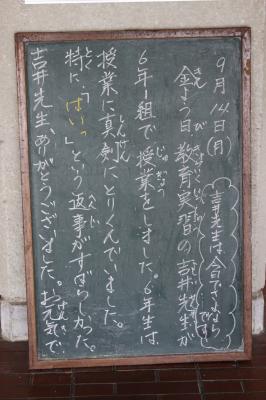 9月14日(月)
吉井先生は今日でさよならです。
金よう日教育実習の吉井先生が
6年1組で授業をしました。6年生は
授業に真剣にとりくんでいました。
特に、「はいっ」という返事がすばらしかった。
吉井先生ありがとうございました。お元気で